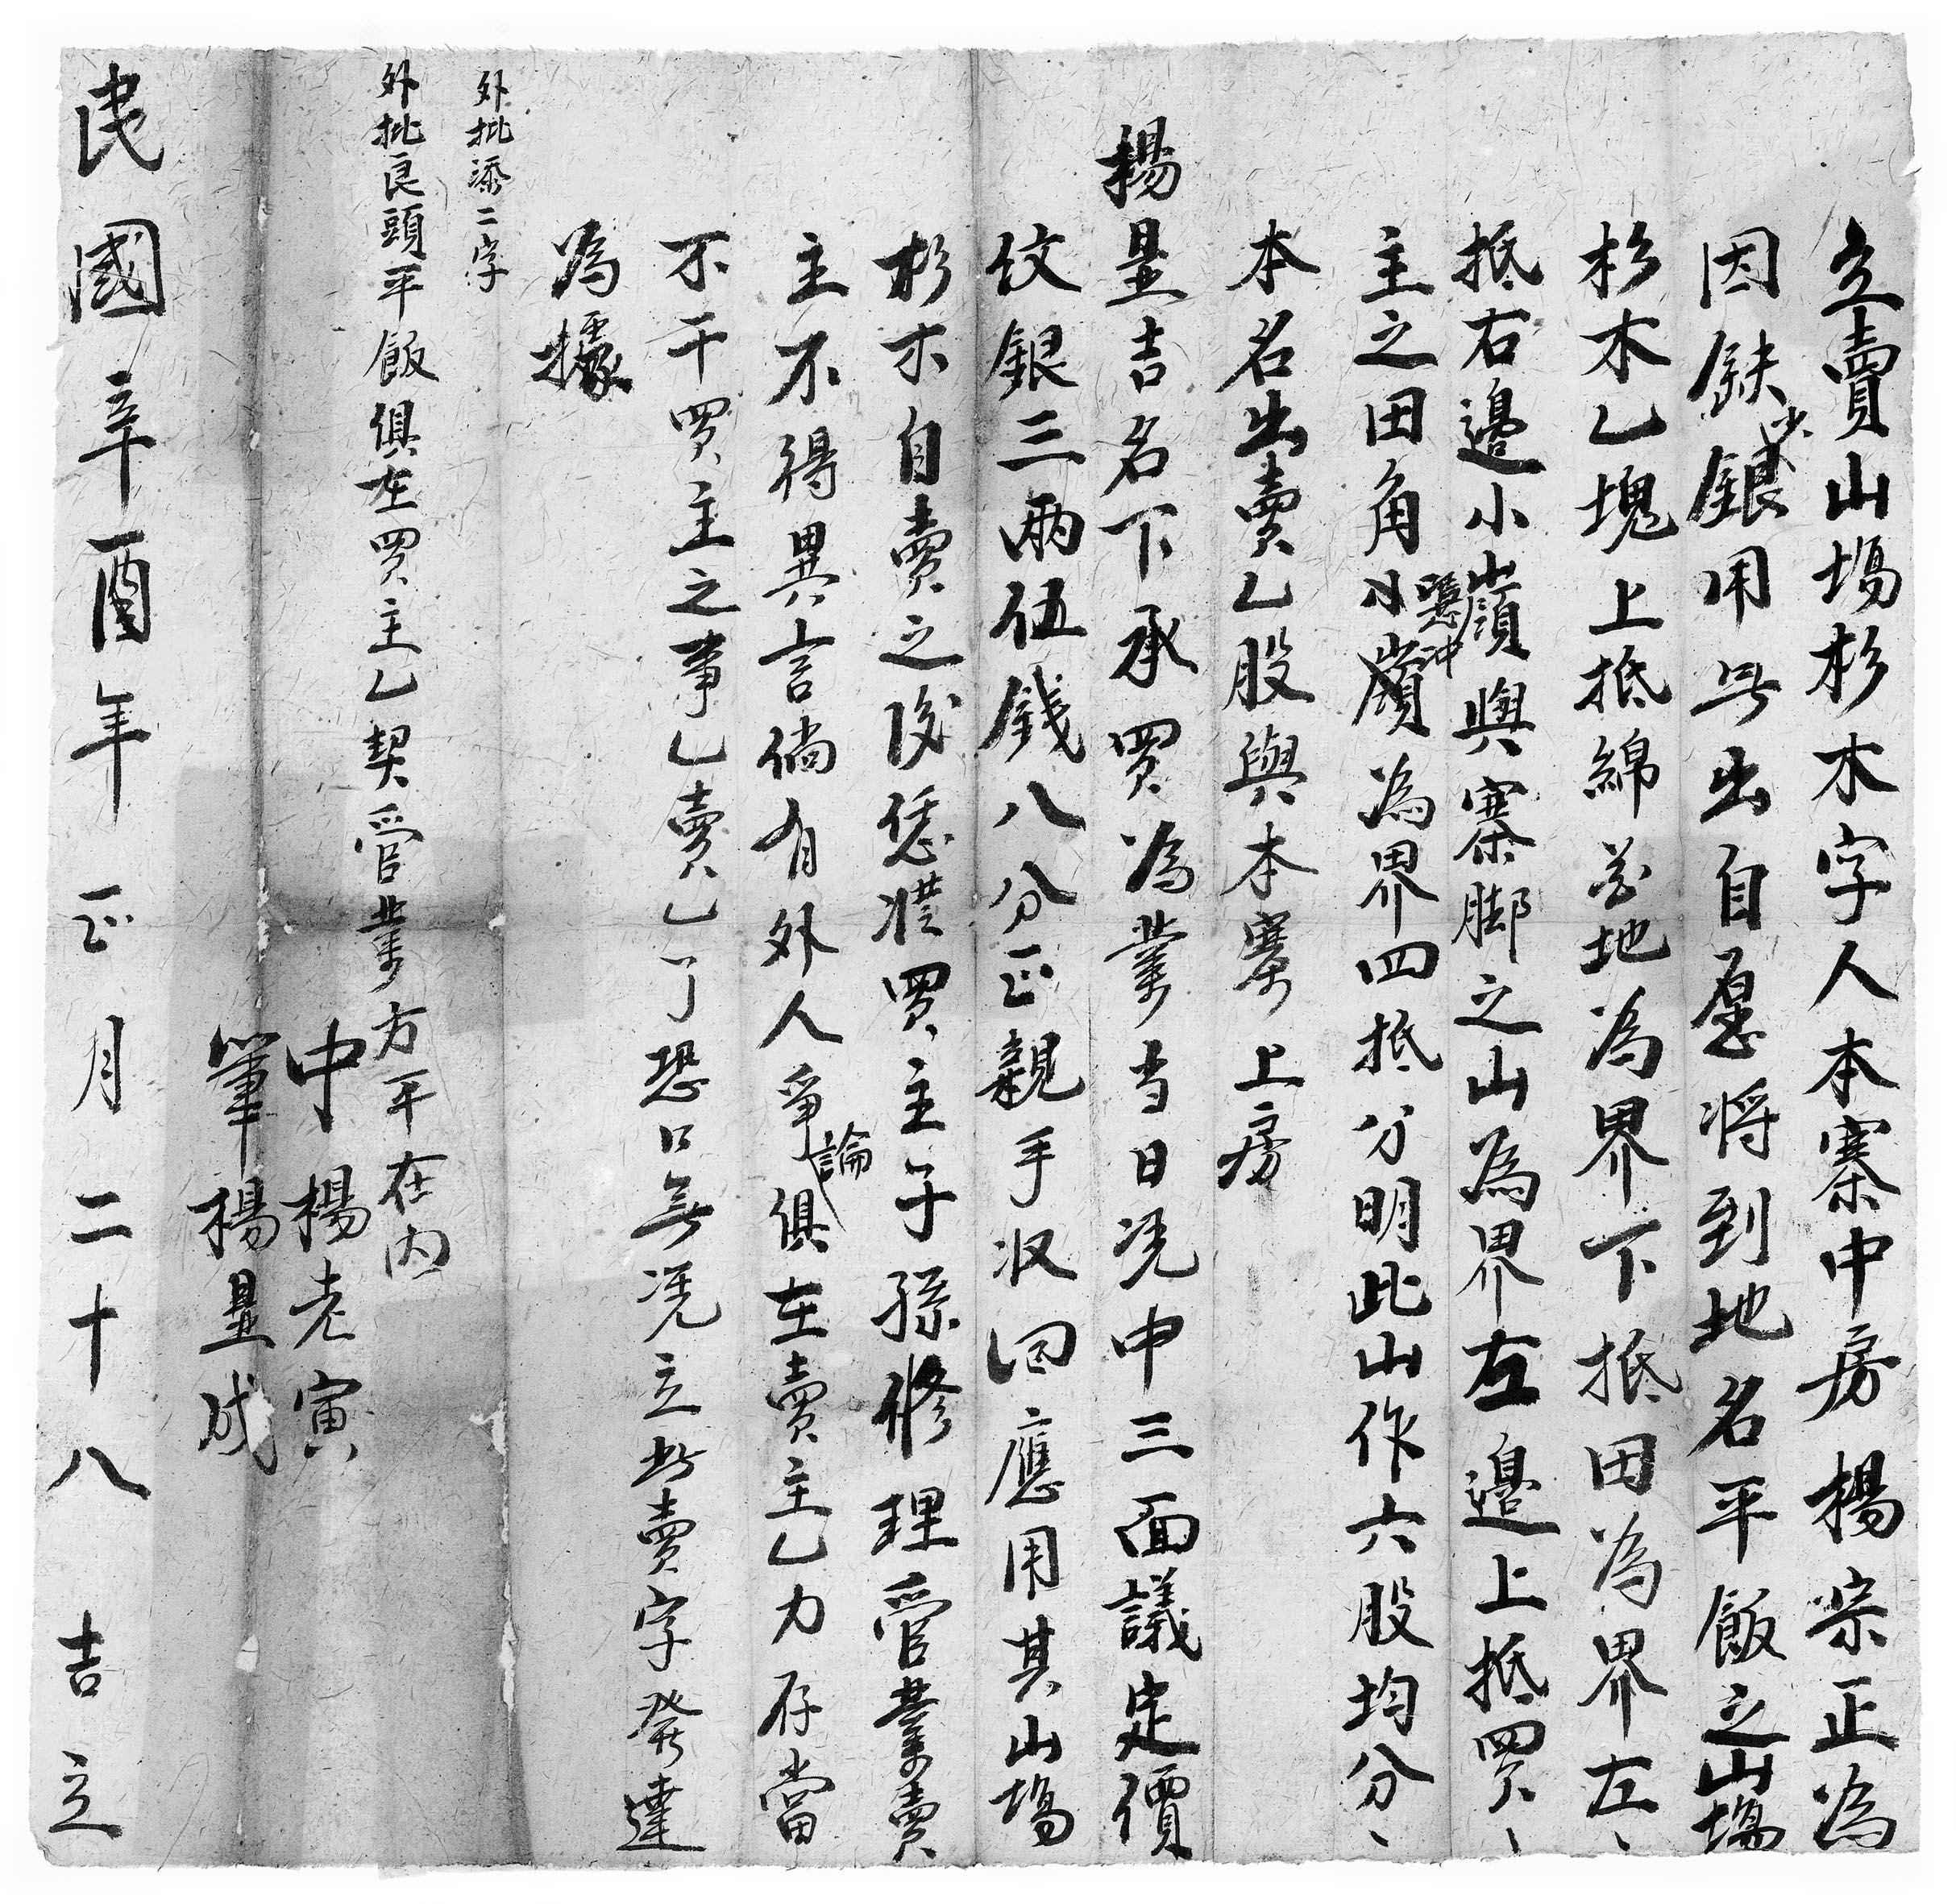 立賣山塲杉木字人本寨中房楊宗正為
因缺少銀用無出自愿将到地名平飯之山塲
杉木乙塊上抵綿花地為界下抵田為界左、
抵右邉小嶺與寨脚之山為界左邉上抵買、
主之田角小嶺憑冲為界四抵分明此山作六股均分、
本名出賣乙股與本寨上房
楊量吉名下承買為業当日凭中三面議定價
纹銀三兩伍錢八分正親手收回應用其山塲
杉木自賣之後恁凴買主子孫修理管業賣
主不得異言倘有外人爭論俱在賣主乙力存當
不干買主之事乙賣乙了恐口無凭立此賣字發達
為據
外批添二字
外批良頭平飯俱在買主乙契管業方平在内
中楊老寅
筆楊量成
民國辛酉年正月二十八吉立